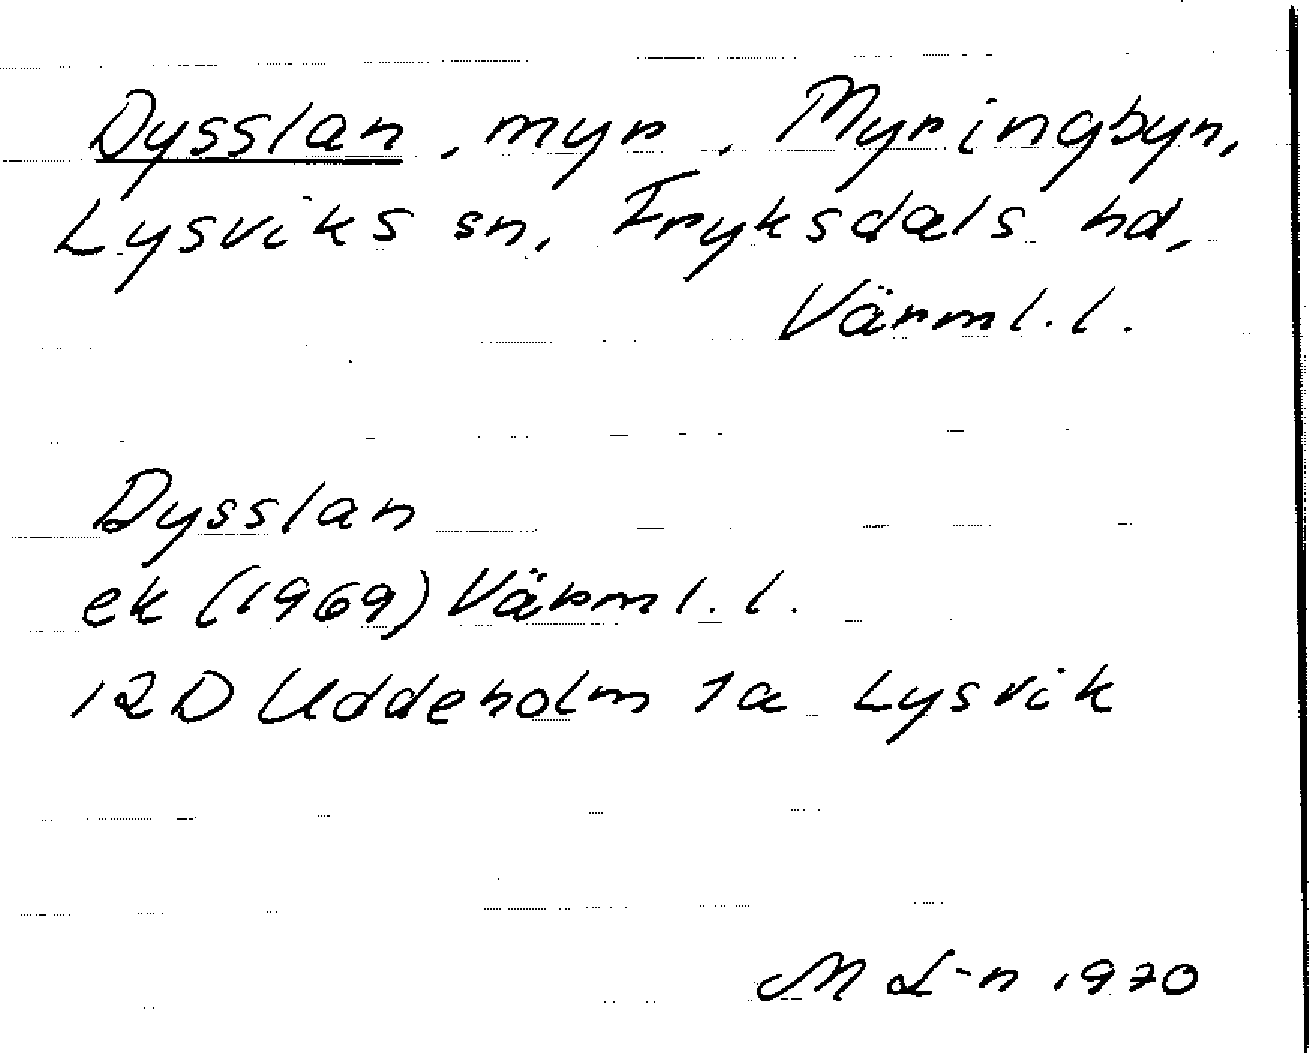 Dysslan, myr, Myringbyn,
Lysviks sn, Fryksdals hd,
Värml. l.
Dysslan
ek (1969) Värml. l.
12D Uddeholm 1a Lysvik
M L-n 1970